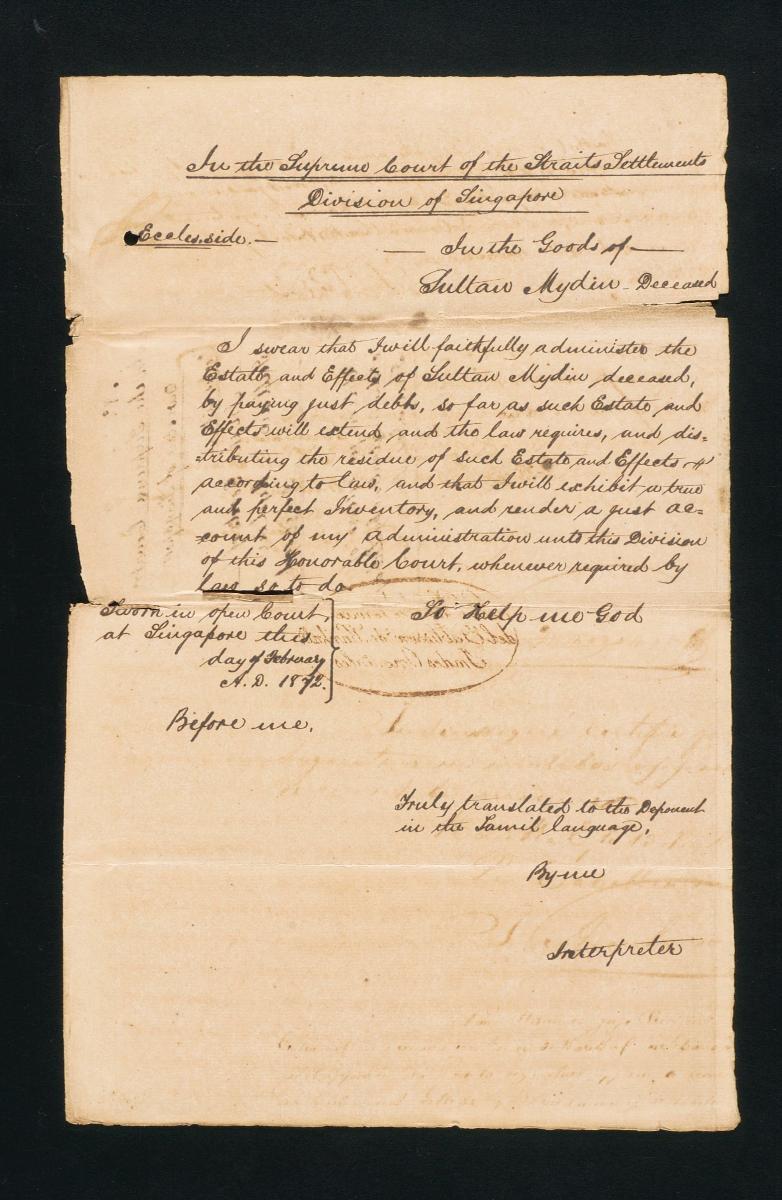 In the Supreme Court of the Straits Settlements
Division of Singapore
Eccles. side. —
— In the Goods of —
Sultan Mydin - Deceased
I swear that I will faithfully administer the
Estate and Effects of Sultan Mydin deceased,
by paying just debts, so far as such Estate and
Effects will extend and the law requires, and dis=
=tributing the residue of such Estate and Effects
according to law, and that I will exhibit a true
and perfect Inventory, and render a just ac=
=count of my administration unto this Division
of this Honorable Court, whenever required by
law so to do
Sworn in open Court,
at Singapore this
day of February
A. D. 1872.
So Help me God
Before me.
Truly translated to the Deponent
in the Tamil language.
By me
Interpreter